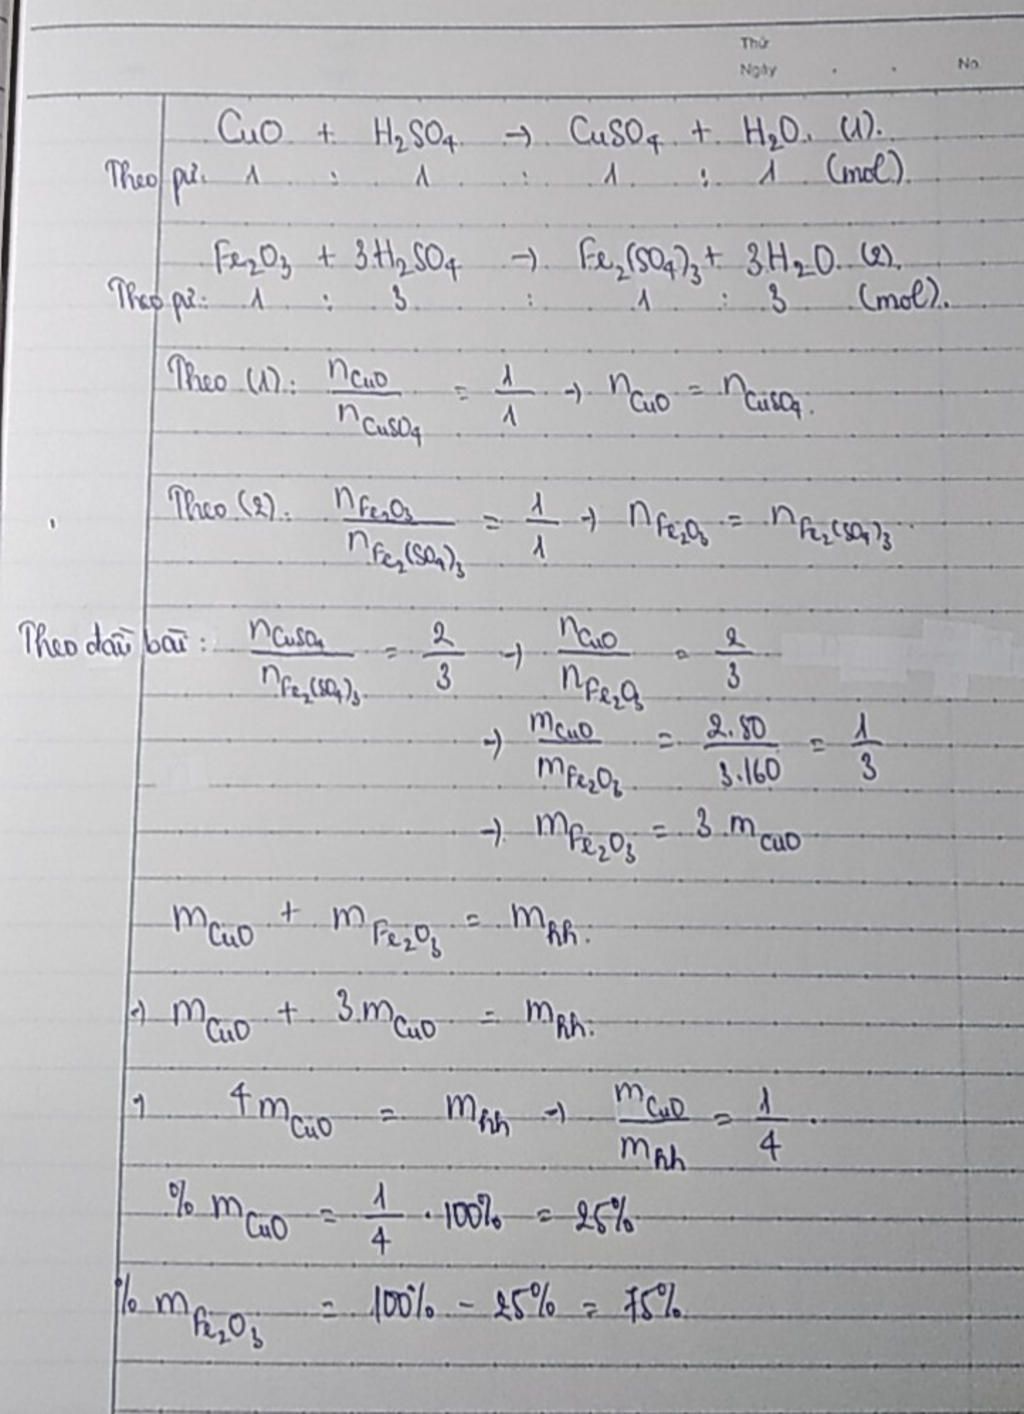 Thứ
Ngày . . No.
CuO + H₂SO₄ → CuSO₄ + H₂O. (1).
Theo pư: 1 : 1 : 1 : 1 (mol).
Fe₂O₃ + 3H₂SO₄ → Fe₂(SO₄)₃ + 3H₂O (2).
Theo pư: 1 : 3 : 1 : 3 (mol).
Theo (1): n CuO / n CuSO₄ = 1/1 → n CuO = n CuSO₄.
Theo (2): n Fe₂O₃ / n Fe₂(SO₄)₃ = 1/1 → n Fe₂O₃ = n Fe₂(SO₄)₃
Theo đầu bài: n CuSO₄ / n Fe₂(SO₄)₃ = 2/3 → n CuO / n Fe₂O₃ = 2/3
→ m CuO / m Fe₂O₃ = 2.80 / 3.160 = 1/3
→ m Fe₂O₃ = 3.m CuO
m CuO + m Fe₂O₃ = m hh.
→ m CuO + 3.m CuO = m hh.
→ 4m CuO = m hh → m CuO / m hh = 1/4.
% m CuO = 1/4 . 100% = 25%
% m Fe₂O₃ = 100% - 25% = 75%